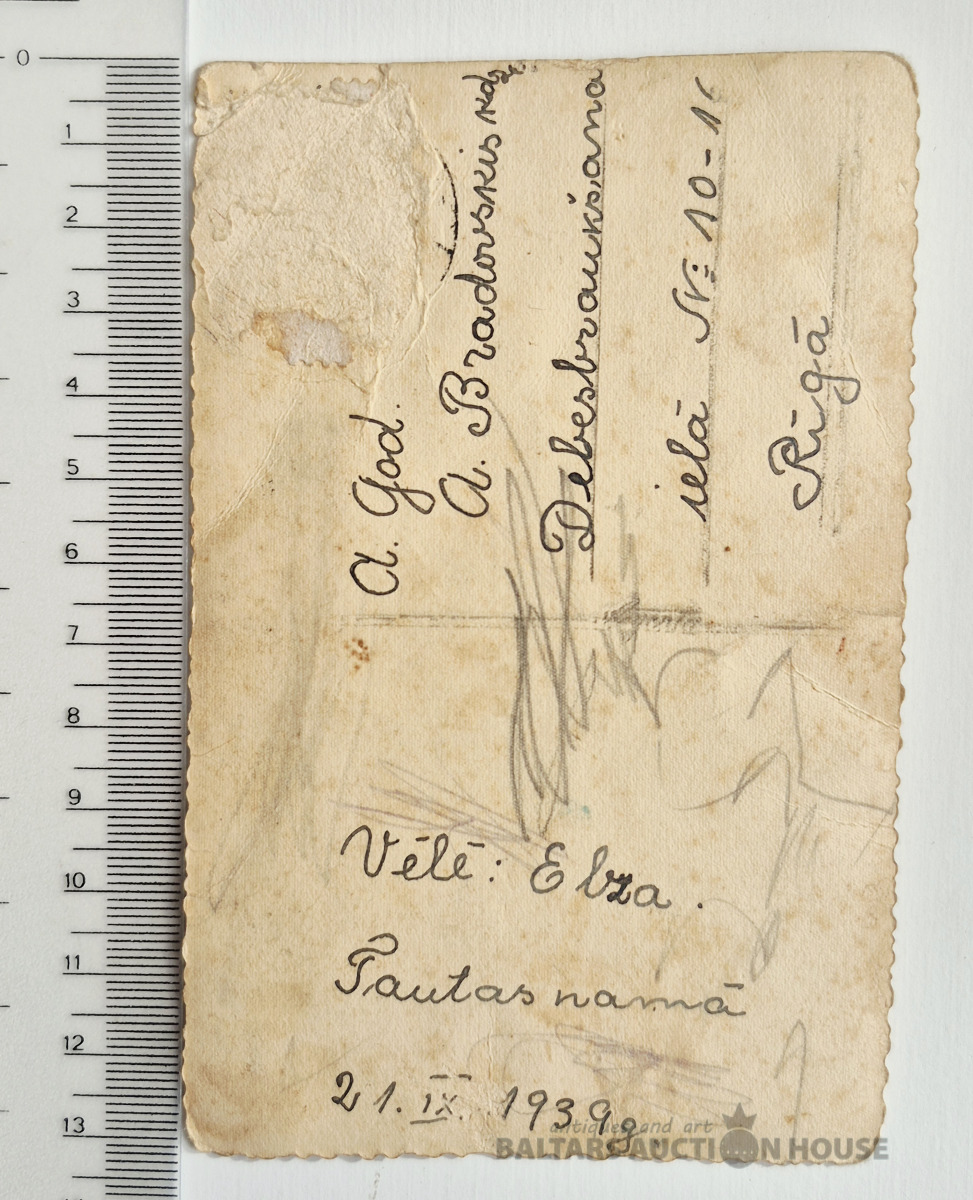 A. God.
A. Bradovskis kdz
Debesbraukšana
ielā Nr: 10-1
Rīgā
Vēlē: Elza.
Tautas namā
21. IX. 1939g.
antiques and art
BALTARS AUCTION HOUSE
0
1
2
3
4
5
6
7
8
9
10
11
12
13